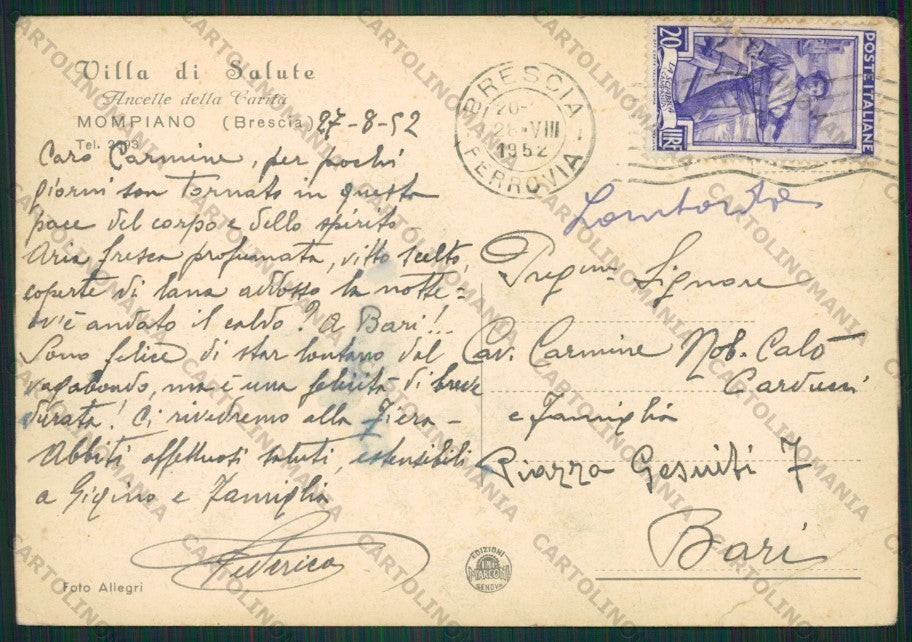 Villa di Salute
Ancelle della Carità
MOMPIANO (Brescia) 27-8-52
Tel. 2393
Caro Carmine, per pochi
giorni son tornato in questa
pace del corpo e dello spirito
Aria fresca profumata, vitto scelto,
coperte di lana addosso la notte =
ov'è andato il caldo? A Bari!..
Sono felice di star lontano dal
vagabondo, ma è una felicità di breve
durata! Ci rivedremo alla Fiera -
Abbiti affettuosi saluti, estensibili
a Gigino e Famiglia
Federico
Foto Allegri
BRESCIA
FERROVIA
20-
28-VIII
1952
POSTE ITALIANE
20
LIRE
Lombardia
Preg.mo Signore
Cav. Carmine Nob. Calò
Carducci
e Famiglia
Piazza Gesuiti 7
Bari
EDIZIONI
MARCONI
GENOVA
CARTOLINOMANIA